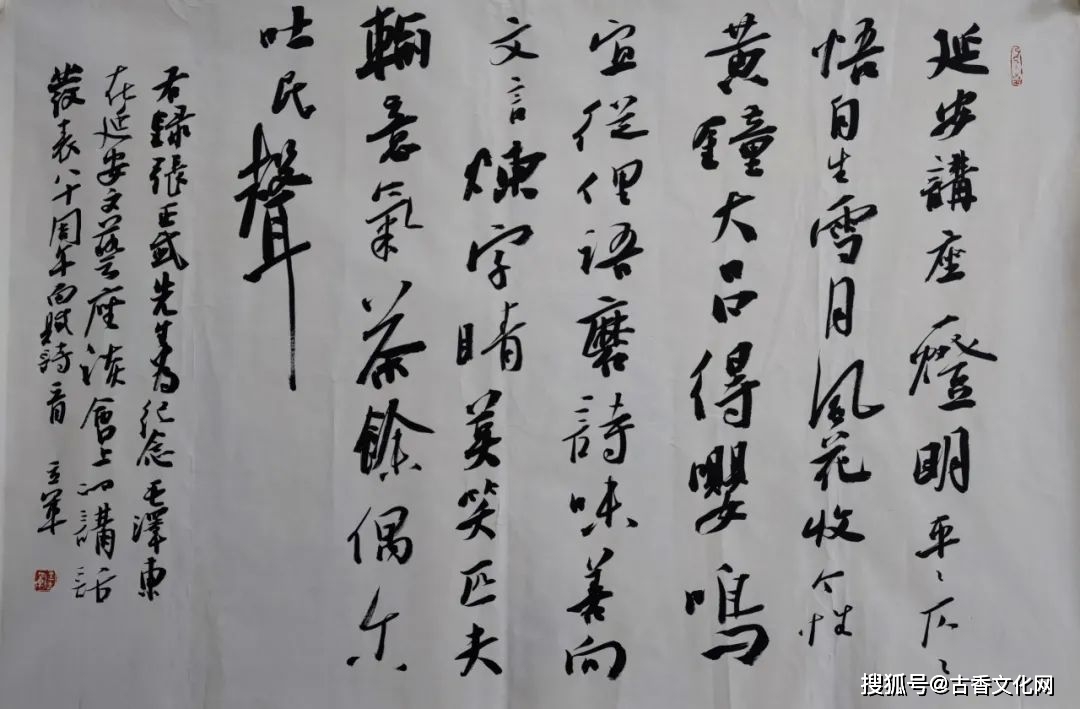 延安講座一燈明平々仄々
悟自生雪月風花收个性
黄鐘大吕得嚶鳴
宜從俚語磨詩味善向
文言煉字睛莫笑匹夫
輸意氣茶餘偶尔
吐民聲
右録張先生为纪念毛澤東
在延安文藝座談會上的講話
發表八十周年而賦詩一首 立軍
搜狐号@古香文化网